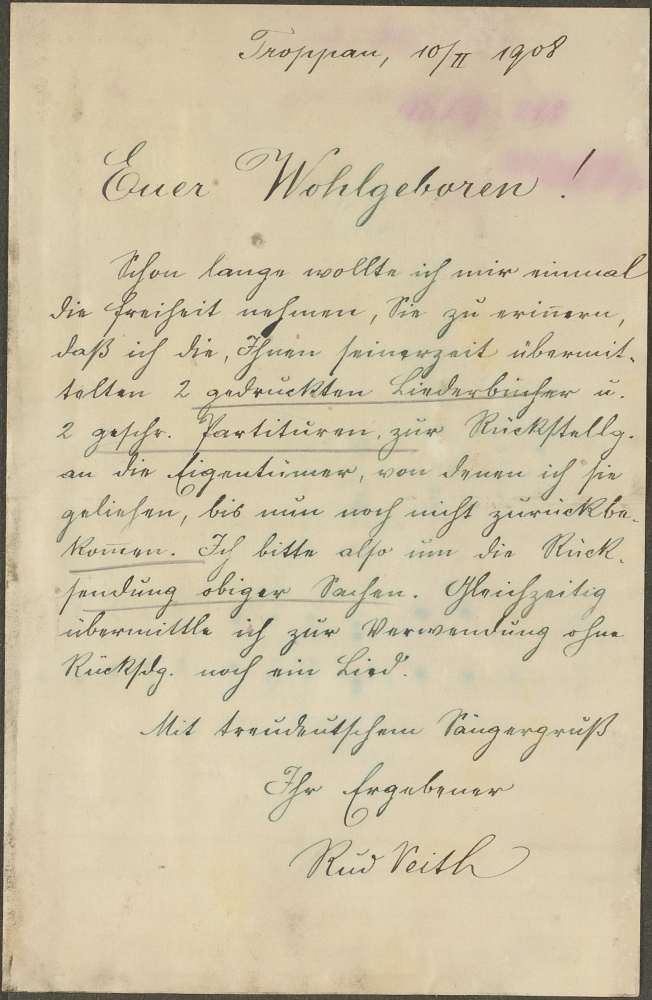 Troppau, 10/II 1908
Euer Wohlgeboren!
Schon lange wollte ich mir einmal
die Freiheit nehmen, Sie zu erin̅ern,
daß ich die, Ihnen seinerzeit übermit-
telten 2 gedruckten Liederbücher u.
2 geschr. Partituren, zur Rückstellg.
an die Eigentümer, von denen ich sie
geliehen, bis nun noch nicht zurückbe-
kom̅en. Ich bitte also um die Rück-
sendung obiger Sachen. Gleichzeitig
übermittle ich zur Verwendung ohne
Rücksdg. noch ein Lied.
Mit treudeutschem Sängergruß
Ihr Ergebener
Rud Veith